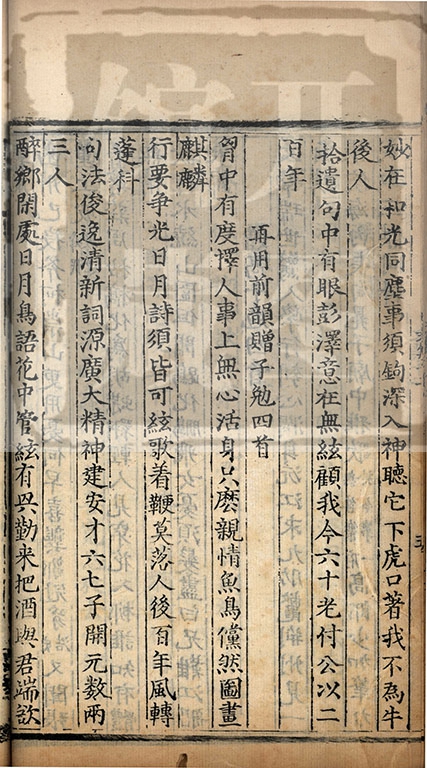 妙在和光同塵事須鉤深入神聽它下虎口著我不為牛
後人
拾遺句中有眼彭澤意在無絃顧我今六十老付公以二
百年
再用前韻贈子勉四首
胷中有度擇人事上無心活身只麽親情魚鳥儻然圖畫
麒麟
行要爭光日月詩須皆可絃歌着鞭莫落人後百年風轉
蓬科
句法俊逸清新詞源廣大精神建安才六七子開元數兩
三人
醉鄉閑處日月鳥語花中管絃有興勤來把酒與君端欲